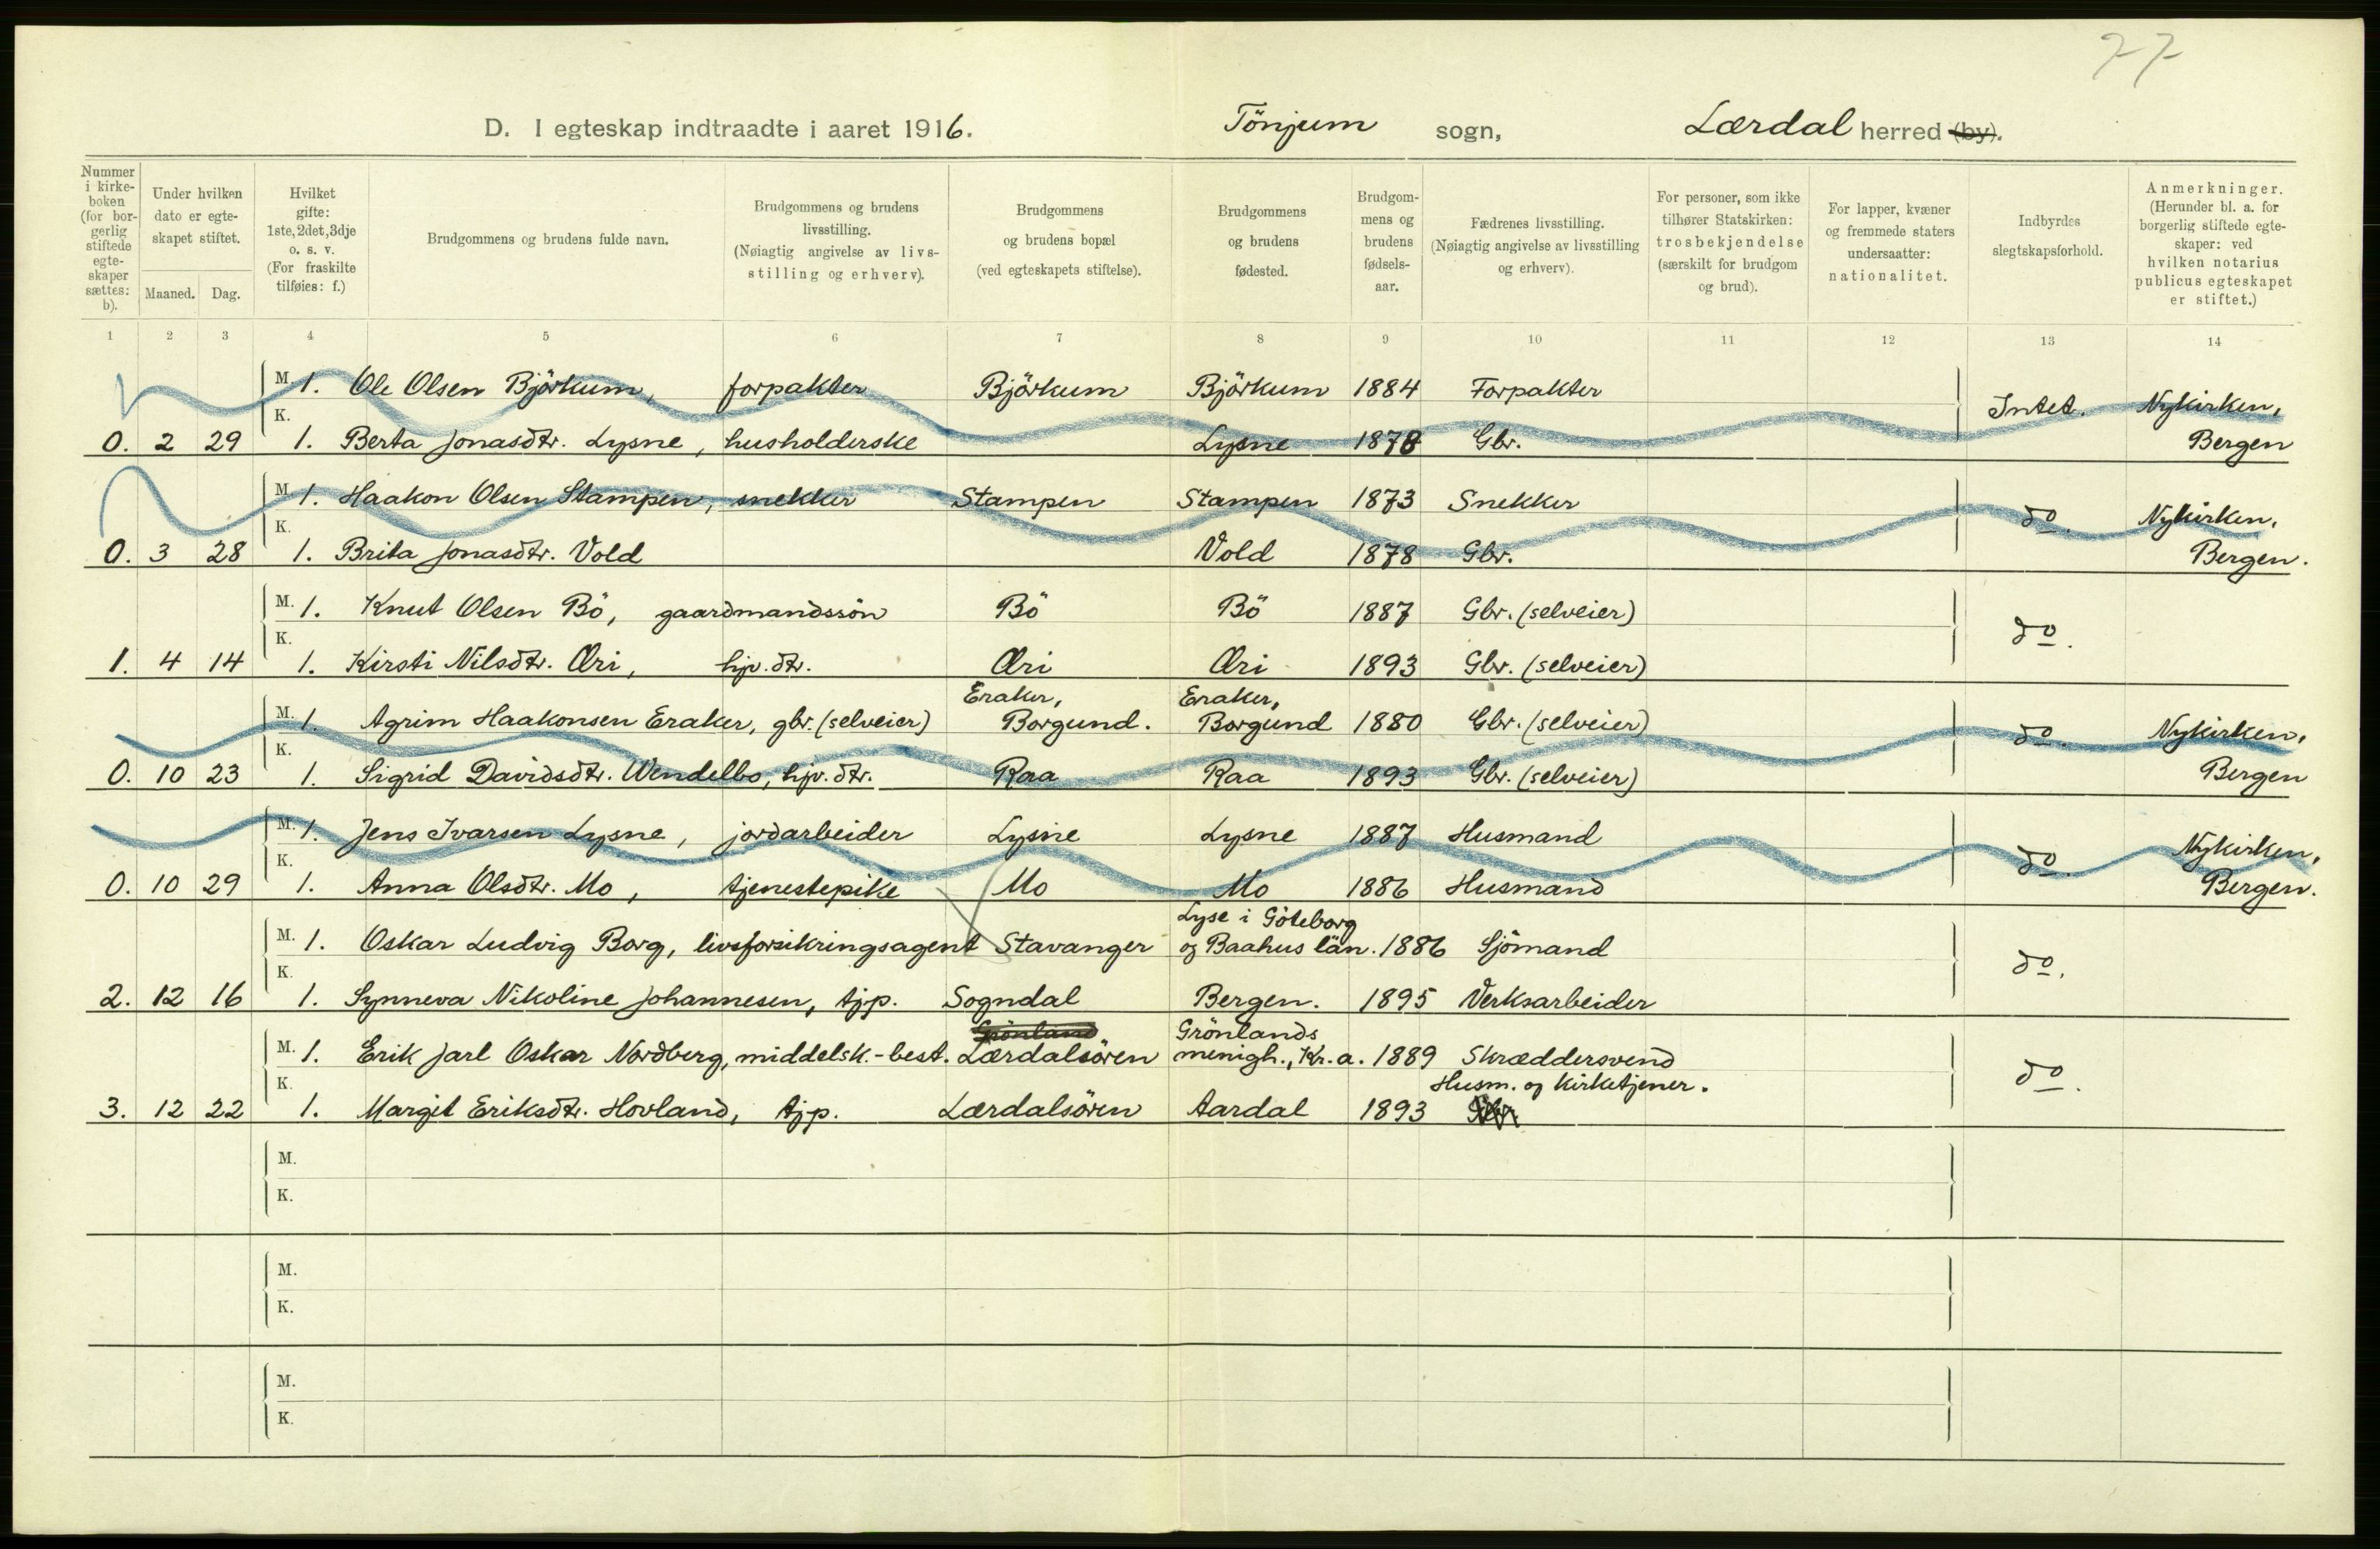 77
D. I egteskap indtraadte i aaret 1916. Tönjum sogn, Lærdal herred (by).
Nummer i kirke-boken (for bor-gerlig stiftede egte-skaper sættes: b).
Under hvilken dato er egte-skapet stiftet.
Maaned. Dag.
Hvilket gifte: 1ste, 2det, 3dje o. s. v. (For fraskilte tilføies: f.)
Brudgommens og brudens fulde navn.
Brudgommens og brudens livsstilling. (Nøiagtig angivelse av livs-stilling og erhverv).
Brudgommens og brudens bopæl (ved egteskapets stiftelse).
Brudgommens og brudens fødested.
Brudgom-mens og brudens fødsels-aar.
Fædrenes livsstilling. (Nøiagtig angivelse av livsstilling og erhverv).
For personer, som ikke tilhører Statskirken: trosbekjendelse (særskilt for brudgom og brud).
For lapper, kvæner og fremmede staters undersaatter: nationalitet.
Indbyrdes slegtskapsforhold.
Anmerkninger. (Herunder bl. a. for borgerlig stiftede egte-skaper: ved hvilken notarius publicus egteskapet er stiftet.)
1 2 3 4 5 6 7 8 9 10 11 12 13 14
M. 1. Ole Olsen Björkum, forpakter Björkum Björkum 1884 Forpakter Intet. Nykirken,
K. 0. 2 29 1. Berta Jonasdtr. Lysne, husholderske Lysne 1878 Gbr. Bergen
M. 1. Haakon Olsen Stampen, snekker Stampen Stampen 1873 Snekker do. Nykirken,
K. 0. 3 28 1. Brita Jonasdtr. Vold Vold 1878 Gbr. Bergen.
M. 1. Knut Olsen Bö, gaardmandssön Bö Bö 1887 Gbr. (selveier) do.
K. 1. 4 14 1. Kirsti Nilsdtr. Æri, hjv. dtr. Æri Æri 1893 Gbr. (selveier)
Eraker, Eraker,
M. 1. Agrim Haakonsen Eraker, gbr. (selveier) Borgund. Borgund 1880 Gbr. (selveier) do. Nykirken,
K. 0. 10 23 1. Sigrid Davidsdtr. Wendelbo, hjv. dtr. Raa Raa 1893 Gbr. (selveier) Bergen
M. 1. Jens Ivarsen Lysne, jordarbeider Lysne Lysne 1887 Husmand do. Nykirken,
K. 0. 10 29 1. Anna Olsdtr. Mo, tjenestepike Mo Mo 1886 Husmand Bergen.
Lyse i Göteborg
M. 1. Oskar Ludvig Borg, livsforsikringsagent Stavanger og Baahus län. 1886 Sjömand do.
K. 2. 12 16 1. Synneva Nikoline Johannesen, tjp. Sogndal Bergen. 1895 Verksarbeider
Grönland Grönlands
M. 1. Erik Jarl Oskar Nordberg, middelsk.-best. Lærdalsören menigh., Kr.a. 1889 Skræddersvend do.
Husm. og kirketjener.
K. 3. 12 22 1. Margit Eriksdtr. Hovland, tjp. Lærdalsören Aardal 1893
M.
K.
M.
K.
M.
K.